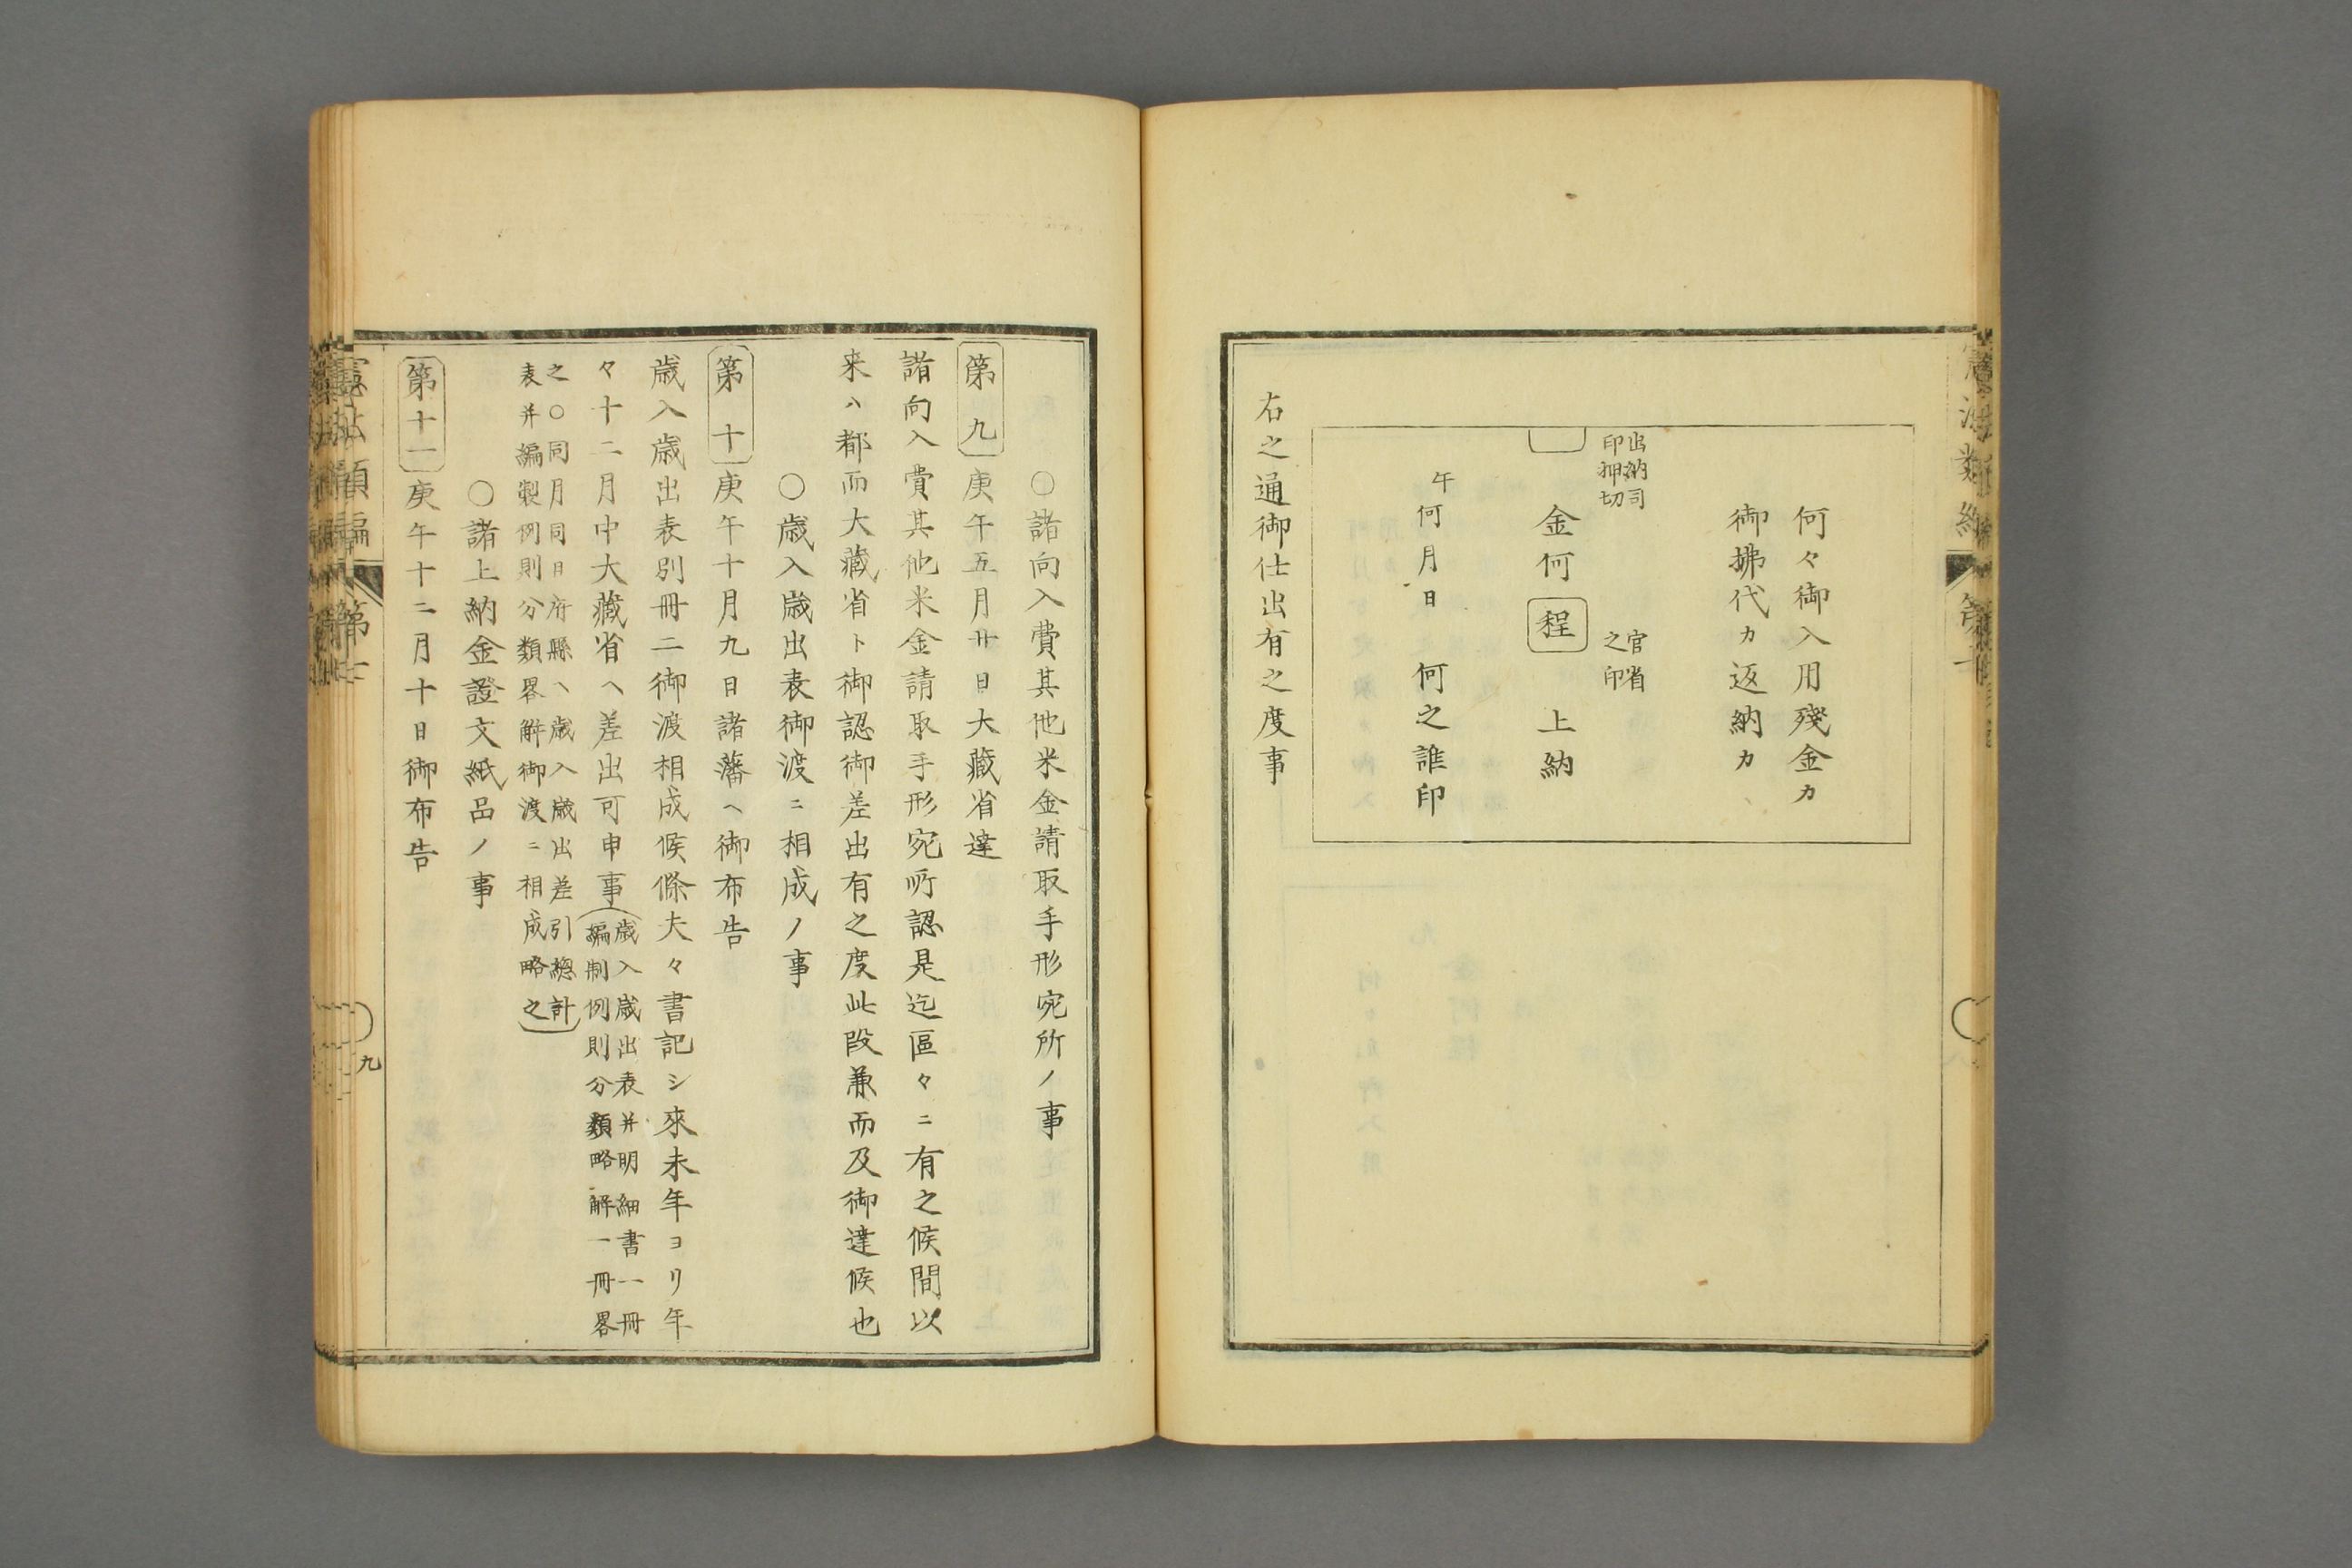 何々御入用殘金カ
御拂代カ返納カ
出納司
印押切
官省
之印
金何程 上納
午何月日 何之誰印
右之通御仕出有之度事
○諸向入費其他米金請取手形宛所ノ事
第九 庚午五月廿日大藏省達
諸向入費其他米金請取手形宛所認是迄區々ニ有之候間以
来ハ都而大藏省ト御認御差出有之度此段兼而及御達候也
○歳入歳出表御渡ニ相成ノ事
第十 庚午十月九日諸藩ヘ御布告
歳入歳出表別冊ニ御渡相成候條夫々書記シ來未年ヨリ年
々十二月中大藏省ヘ差出可申事
歳入歳出表并明細書一冊
編制例則分類略解一冊畧
之○同月同日府縣ヘ歳入歳出差引總計
表并編製例則分類畧解御渡ニ相成略之
○諸上納金證文紙品ノ事
第十一 庚午十二月十日御布告
九